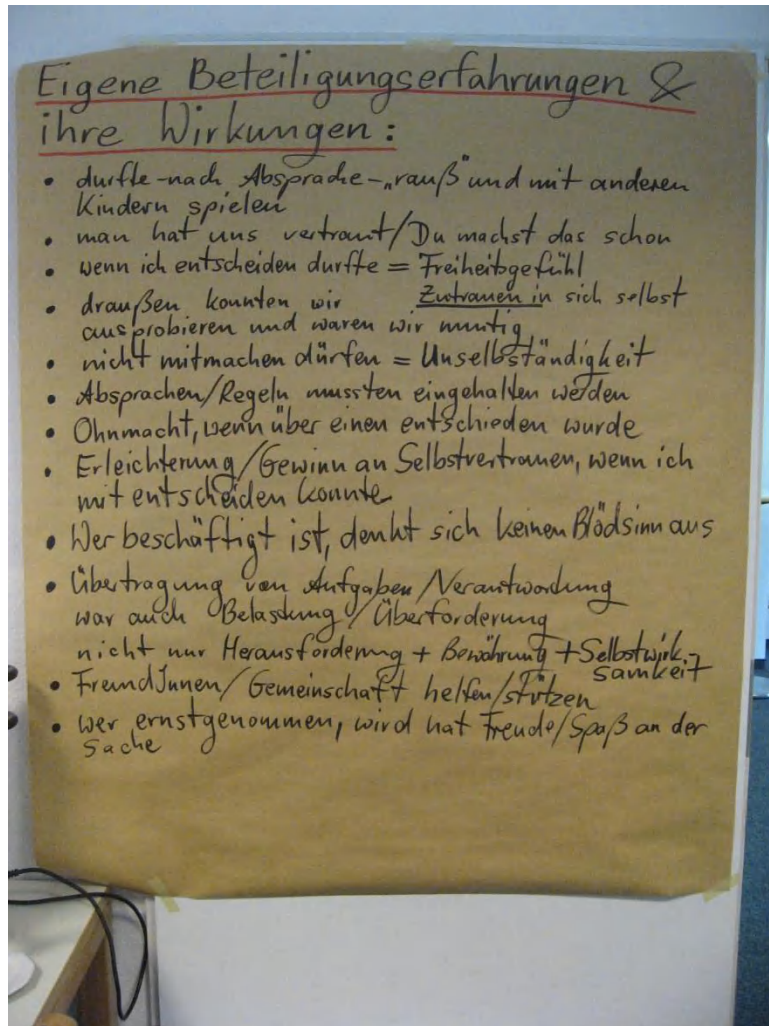 Eigene Beteiligungserfahrungen &
ihre Wirkungen:
• durfte - nach Absprache - „rauß" und mit anderen
Kindern spielen
• man hat uns vertraut/Du machst das schon
• wenn ich entscheiden durfte = Freiheitsgefühl
Zutrauen in sich selbst
• draußen konnten wir
ausprobieren und waren wir mutig
• nicht mitmachen dürfen = Unselbständigkeit
• Absprachen/Regeln mussten eingehalten werden
• Ohnmacht, wenn über einen entschieden wurde
• Erleichterung/Gewinn an Selbstvertrauen, wenn ich
mit entscheiden konnte
• Wer beschäftigt ist, denkt sich keinen Blödsinn aus
• Übertragung von Aufgaben/Verantwordung
war auch Belastung/Überforderung
nicht nur Herausforderung + Bewährung + Selbstwirk-
samkeit
• FreundInnen/Gemeinschaft helfen/stützen
• wer ernstgenommen, wird hat Freude/Spaß an der
Sache